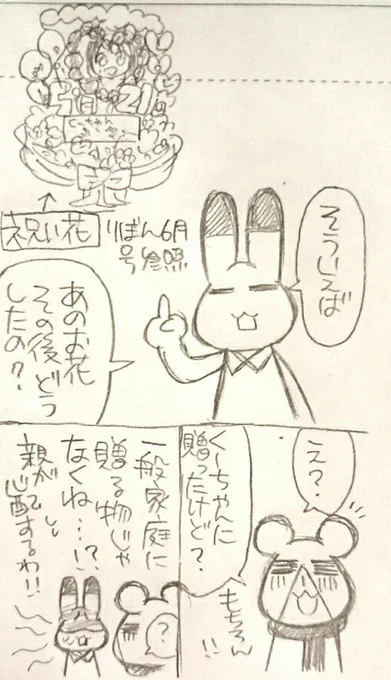 祝い花
りぼん6月
号参照
そういえば
あのお花
その後どう
したの?
え?
くーちゃんに
贈ったけど?
もちろん
!!
一般家庭に
贈る物じゃ
なくね…!?
親が
心配するわ!!
?